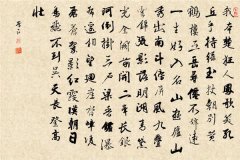 我本楚狂人鳳歌笑孔
丘手持綠玉杖朝別黃
鶴樓五嶽尋仙不辭遠
一生好入名山遊廬山
秀出南斗傍屏風九疊
雲錦張影落明湖青黛
光金闕前開二峰長銀
河倒掛三石梁香爐瀑
布遙相望迴崖沓嶂凌
蒼蒼翠影紅霞映朝日
鳥飛不到吳天長登高
壯